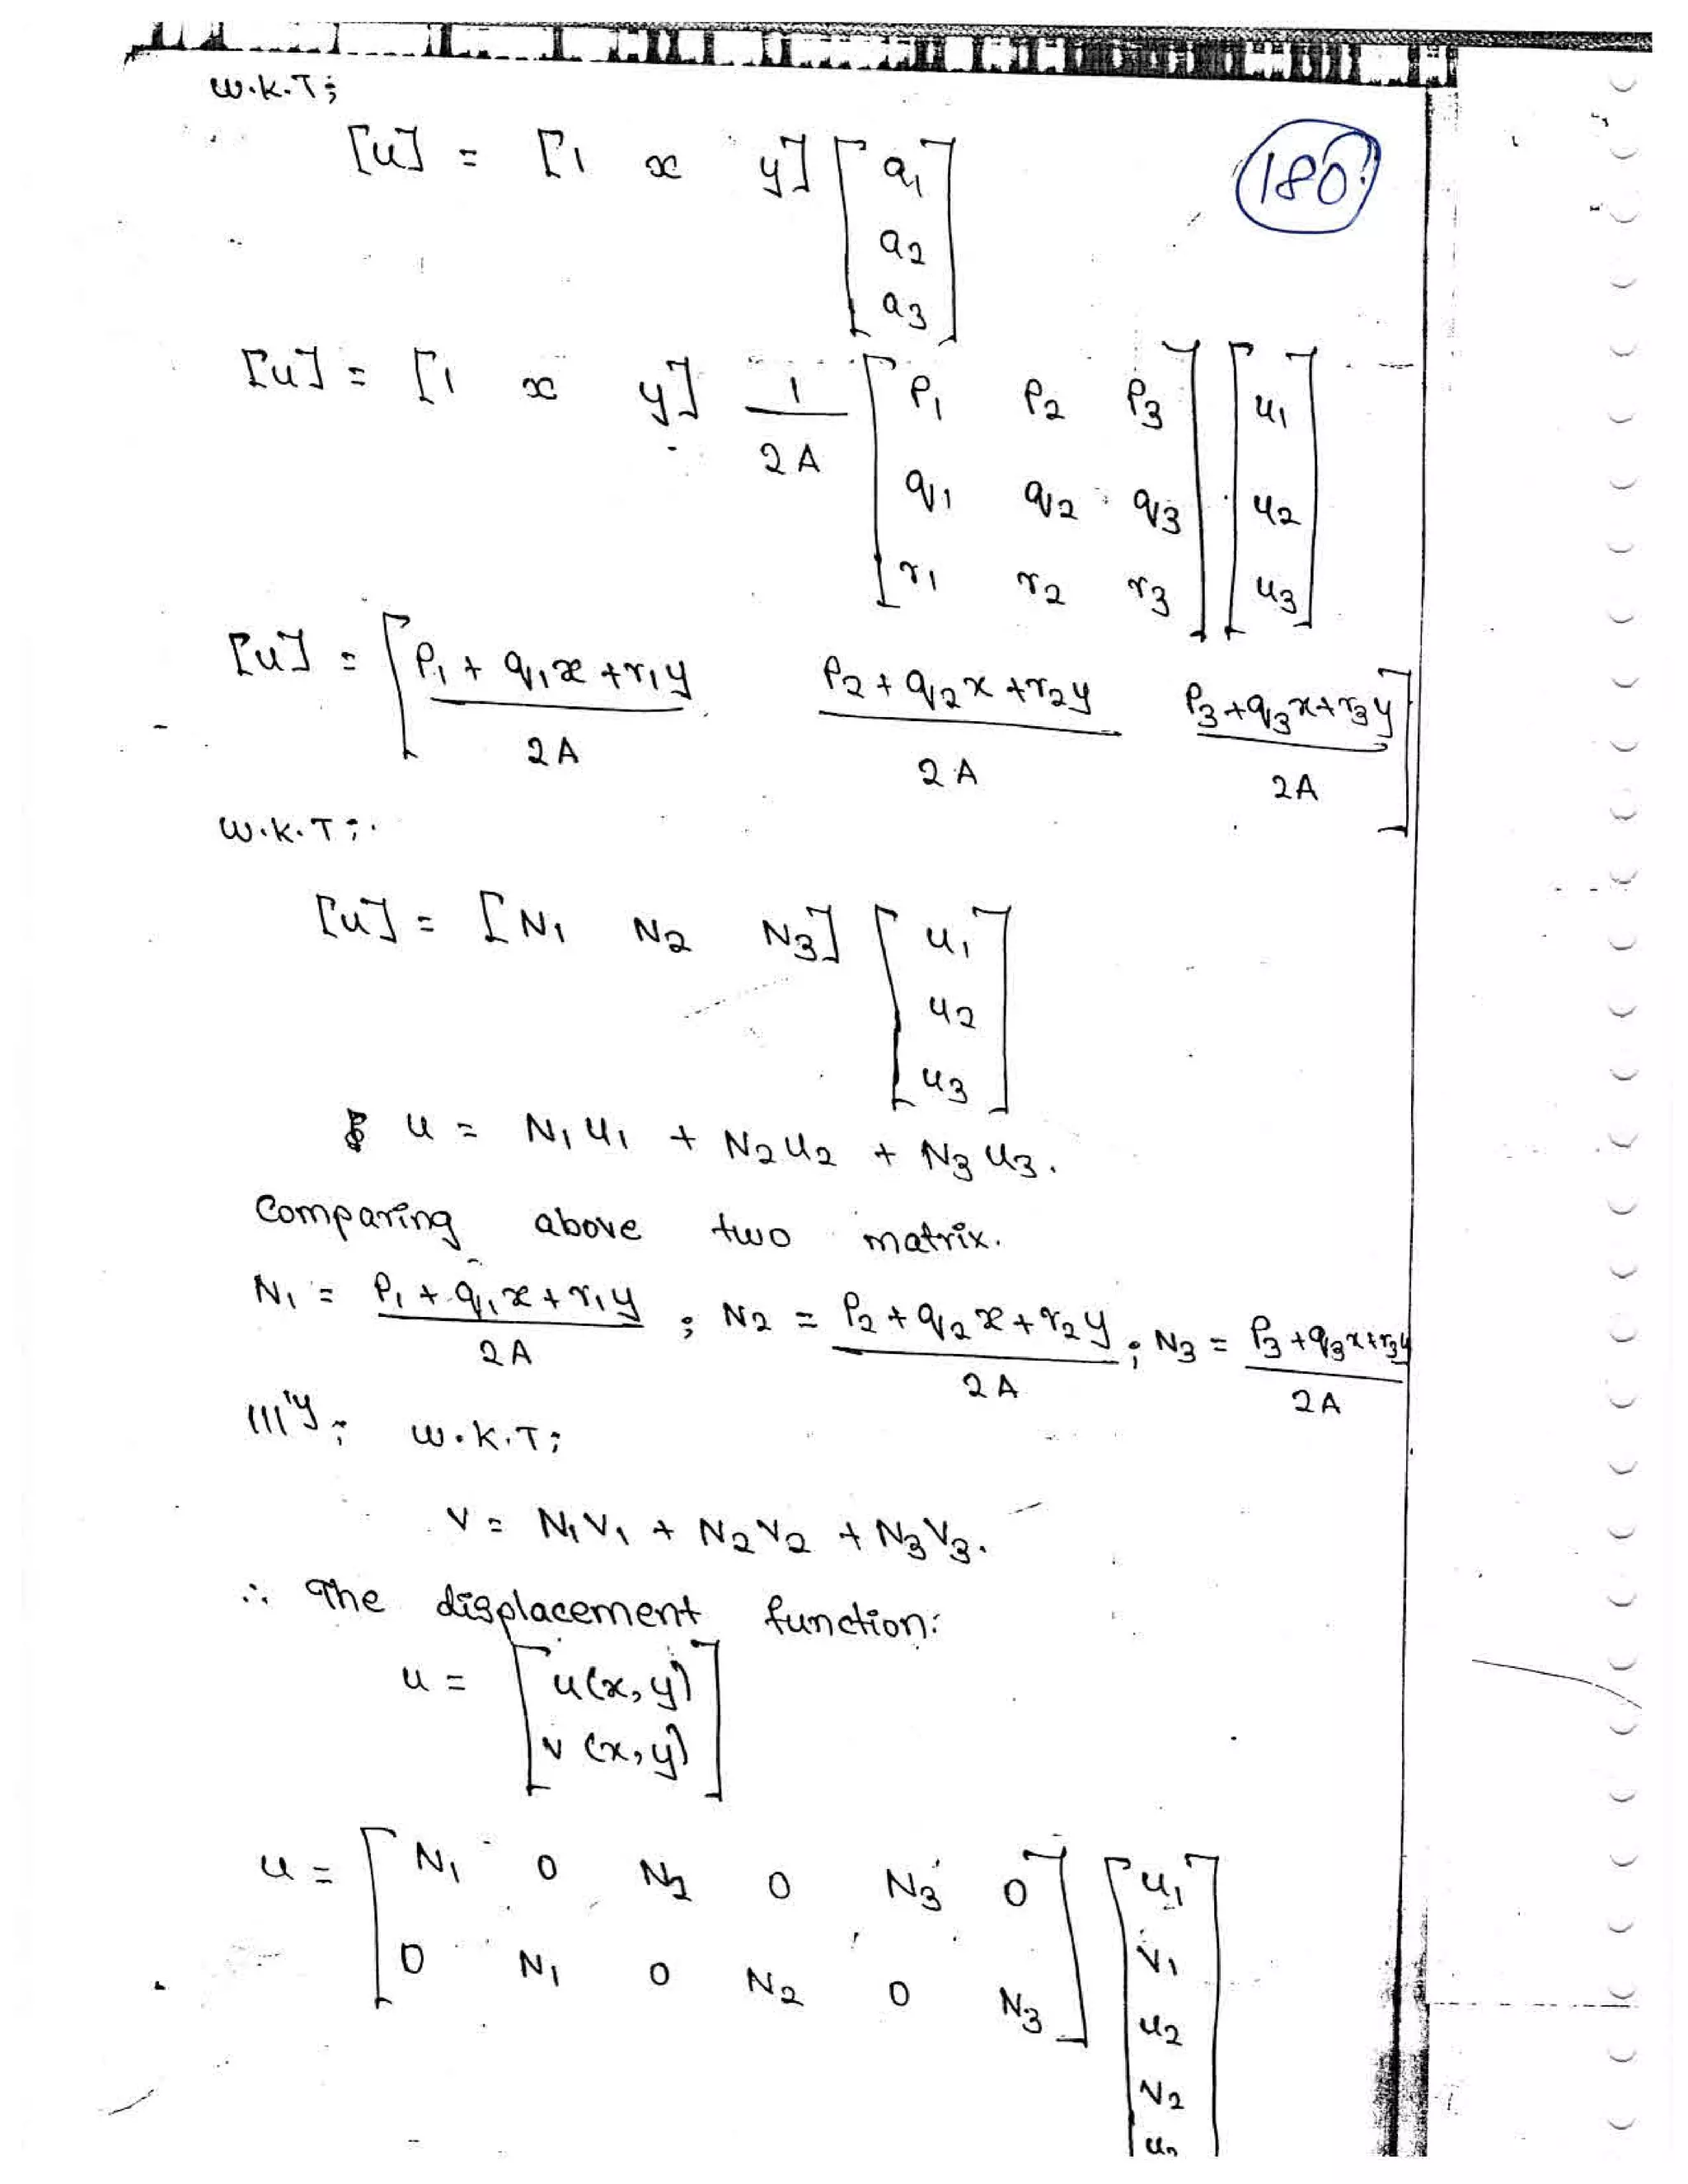 W.K.T;
180
[u] = [1 x y] [a1
a2
a3]
[u] = [1 x y] 1/2A [P1 P2 P3
q1 q2 q3
r1 r2 r3] [u1
u2
u3]
[u] = [P1 + q1x + r1y / 2A P2 + q2x + r2y / 2A P3 + q3x + r3y / 2A]
W.K.T;
[u] = [N1 N2 N3] [u1
u2
u3]
u = N1u1 + N2u2 + N3u3.
Comparing above two matrix.
N1 = P1 + q1x + r1y / 2A ; N2 = P2 + q2x + r2y / 2A ; N3 = P3 + q3x + r3y / 2A
|||'y; W.K.T;
V = N1V1 + N2V2 + N3V3.
∴ The displacement function:
u = [u(x,y)
v(x,y)]
u = [N1 0 N2 0 N3 0
0 N1 0 N2 0 N3] [u1
V1
u2
V2